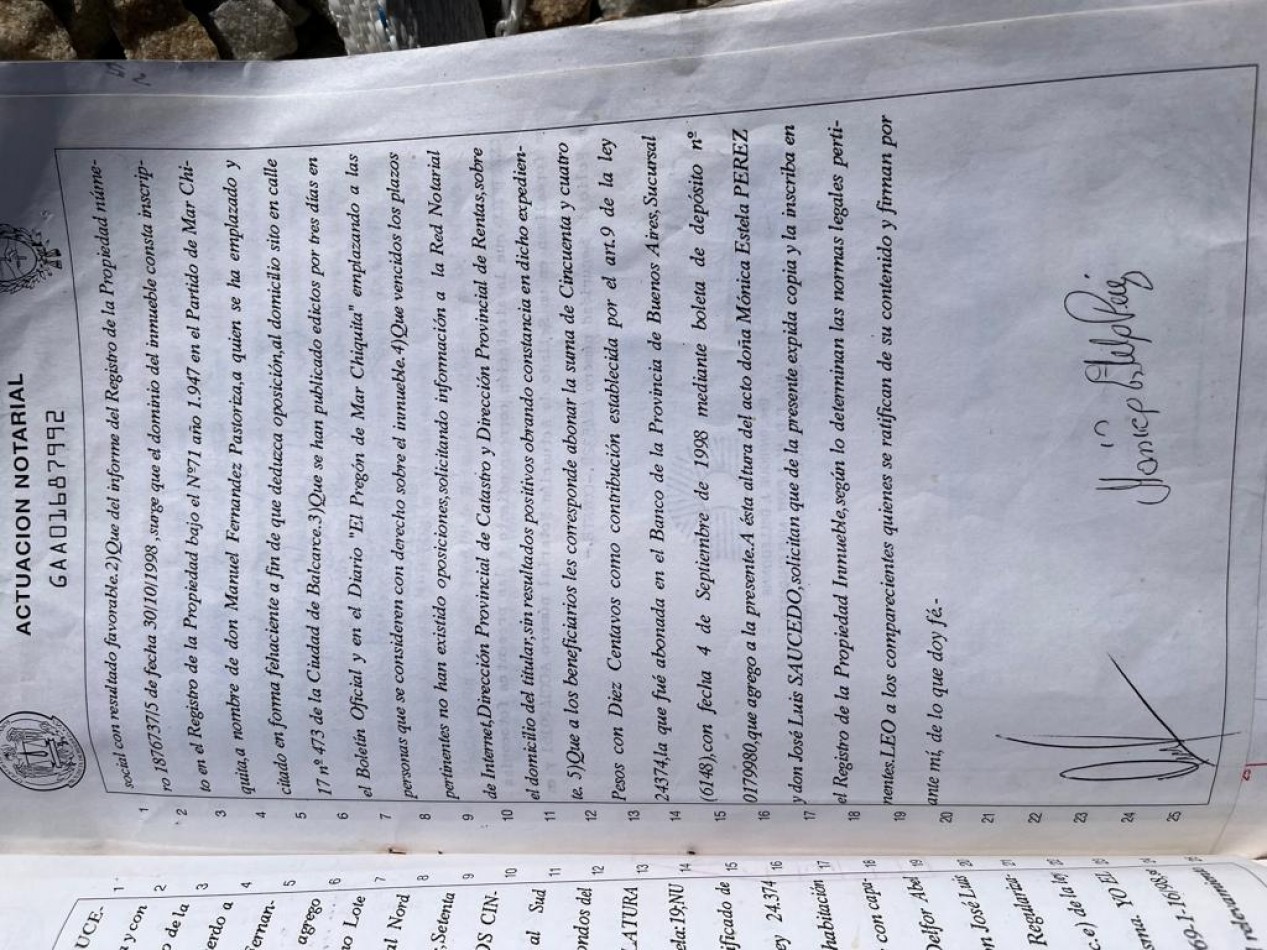 ACTUACION NOTARIAL
GAA01687992
1 social con resultado favorable.2)Que del informe del Registro de la Propiedad núme-
2 ro 1876737/5 de fecha 30/10/1998 ,surge que el dominio del inmueble consta inscrip-
3 to en el Registro de la Propiedad bajo el Nº71 año 1.947 en el Partido de Mar Chi-
4 quita,a nombre de don Manuel Fernandez Pastoriza,a quien se ha emplazado y
5 citado en forma fehaciente a fin de que deduzca oposición,al domicilio sito en calle
6 17 nº 473 de la Ciudad de Balcarce.3)Que se han publicado edictos por tres días en
7 el Boletín Oficial y en el Diario "El Pregón de Mar Chiquita" emplazando a las
8 personas que se consideren con derecho sobre el inmueble.4)Que vencidos los plazos
9 pertinentes no han existido oposiciones,solicitando información a la Red Notarial
10 de Internet,Dirección Provincial de Catastro y Dirección Provincial de Rentas,sobre
11 el domicilio del titular,sin resultados positivos obrando constancia en dicho expedien-
12 te. 5)Que a los beneficiarios les corresponde abonar la suma de Cincuenta y cuatro
13 Pesos con Diez Centavos como contribución establecida por el art.9 de la ley
14 24374,la que fué abonada en el Banco de la Provincia de Buenos Aires,Sucursal
15 (6148),con fecha 4 de Septiembre de 1998 mediante boleta de depósito nº
16 0179980,que agrego a la presente.A ésta altura del acto doña Mónica Estela PEREZ
17 y don José Luis SAUCEDO,solicitan que de la presente expida copia y la inscriba en
18 el Registro de la Propiedad Inmueble,según lo determinan las normas legales perti-
19 nentes.LEO a los comparecientes quienes se ratifican de su contenido y firman por
20 ante mi, de lo que doy fé.-
21
22
23
24
25
UCE-
1
a y con
2
o de la
3
erdo a
4
Fernan-
5
agrego
6
no Lote
7
al Nord
8
,Setenta
9
OS CIN-
10
al Sud
11
ondos del
12
LATURA
13
ela:19;NU
14
ificado de
15
ey 24.374
16
habitación
17
con capa-
18
Delfor Abel
19
n José Luis
20
Regulariza-
21
c.e) de la ley
22
sma. YO EL
23
9-1-16/98,s
24